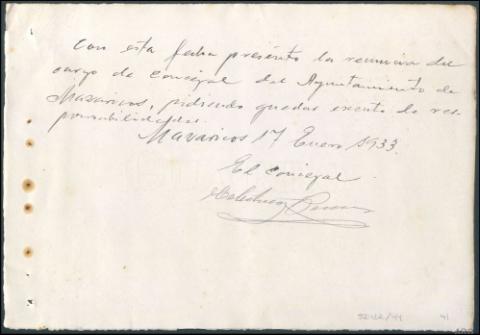 Con esta fecha presento la renuncia del
cargo de Concejal del Ayuntamiento de
Mazaricos, pidiendo quedar exento de res-
ponsabilidades.
Mazaricos 17 Enero 1933.
El Concejal